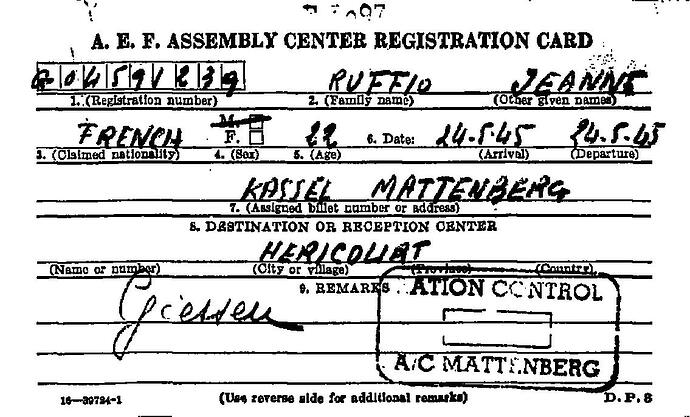 A. E. F. ASSEMBLY CENTER REGISTRATION CARD
G04591239 RUFFIO JEANNE
1. (Registration number) 2. (Family name) (Other given names)
M.
FRENCH F. 22 6. Date: 24.5.45 24.5.45
3. (Claimed nationality) 4. (Sex) 5. (Age) (Arrival) (Departure)
KASSEL MATTENBERG
7. (Assigned billet number or address)
8. DESTINATION OR RECEPTION CENTER
HERICOURT
(Name or number) (City or village) (Province) (Country)
9. REMARKS ATION CONTROL
Giessen
A/C MATTENBERG
16—39724-1 (Use reverse side for additional remarks) D.P.S